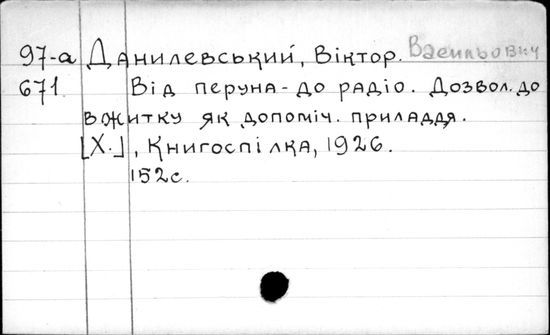 97-а Данилевський, Віктор. Васильович
671 Від перуна - до радіо. Дозвол. до
вжитку як допоміч. приладдя.
[Х.], Книгоспілка, 1926.
152с.